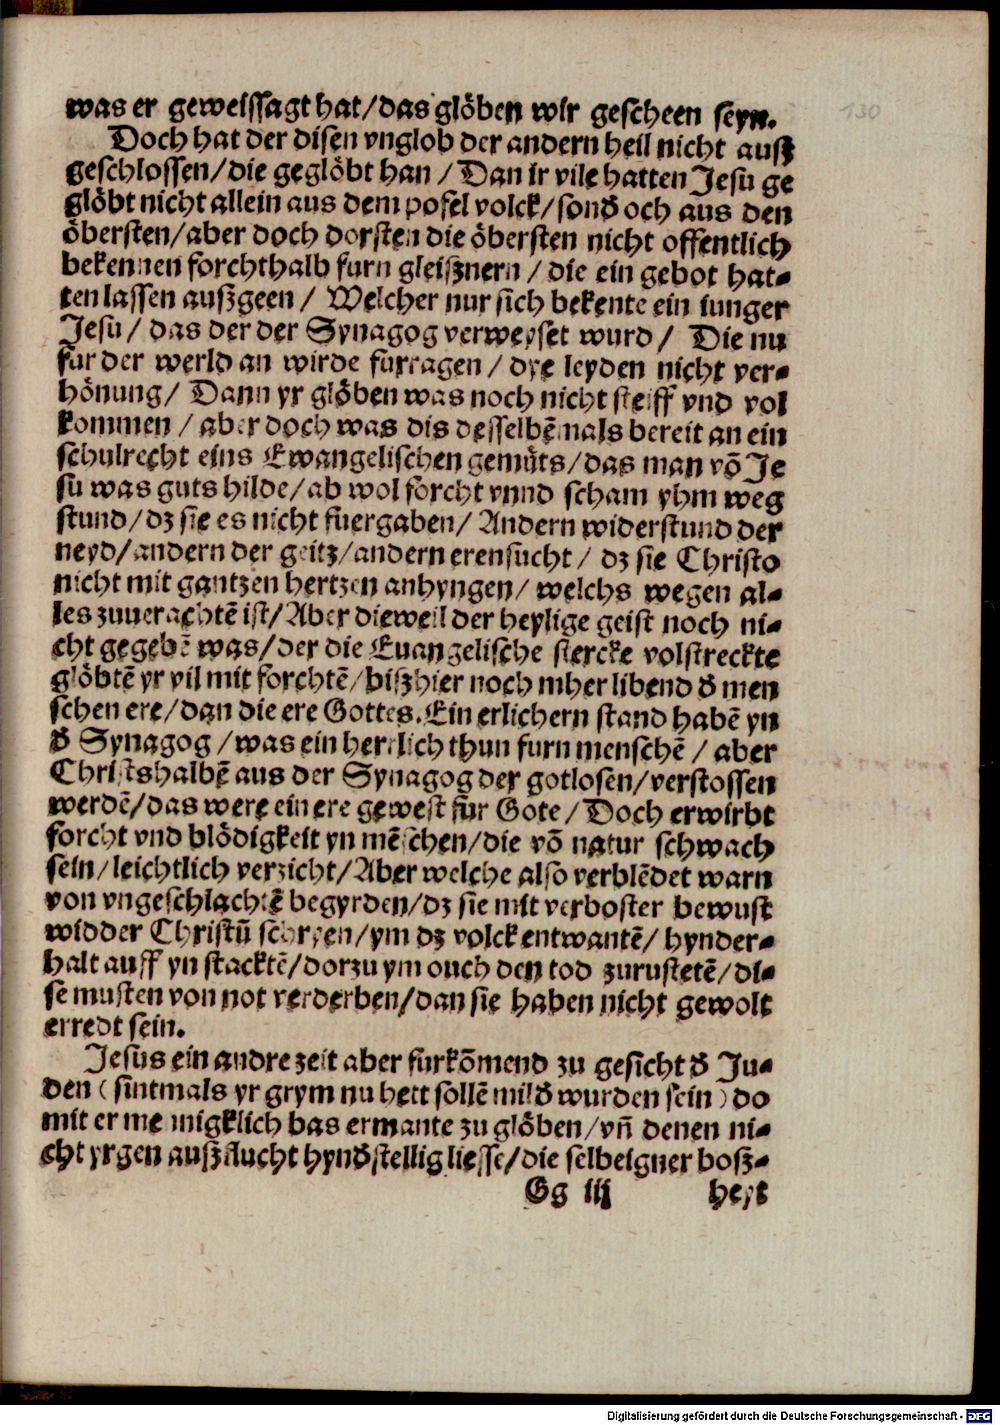 was er geweissagt hat/das glöben wir gescheen seyn.
Doch hat der disen vnglob der andern heil nicht ausz
geschlossen/die geglöbt han/Dan ir vile hatten Jesu ge
glöbt nicht allein aus dem pofel volck/sonđ och aus den
öbersten/aber doch dorsten die öbersten nicht offentlich
bekennen forchthalb furn gleisznern/die ein gebot hat-
ten lassen auszgeen/Welcher nur sich bekente ein iunger
Jesu/das der der Synagog verweyset wurd/Die nu
fur der werld an wirde furragen/dye leyden nicht ver-
hönung/Dann yr glöben was noch nicht steiff vnd vol
kommen/aber doch was dis desselbẽmals bereit an ein
schulrecht eins Ewangelischen gemüts/das man võ Je
su was guts hilde/ab wol forcht vnnd scham yhm weg
stund/dz sie es nicht fuergaben/Andern widerstund der
neyd/andern der geitz/andern erensucht/dz sie Christo
nicht mit gantzen hertzen anhyngen/welchs wegen al-
les zuuerachtẽ ist/Aber dieweil der heylige geist noch ni-
cht gegebẽ was/der die Euangelische stercke volstreckte
glöbtẽ yr vil mit forchtẽ/biszhier noch mher libend đ men
schen ere/dan die ere Gottes. Ein erlichern stand habẽ yn
đ Synagog/was ein herrlich thun furn menschẽ/aber
Christshalbẽ aus der Synagog der gotlosen/verstossen
werdẽ/das were ein ere gewest für Gote/Doch erwirbt
forcht vnd blödigkeit yn mẽschen/die võ natur schwach
sein/leichtlich verzicht/Aber welche also verblẽdet warn
von vngeschlachtẽ begyrden/dz sie mit verboster bewust
widder Christũ schryen/ym dz volck entwantẽ/hynder-
halt auff yn stacktẽ/dorzu ym ouch den tod zurustetẽ/di-
se musten von not verderben/dan sie haben nicht gewolt
erredt sein.
Jesus ein andre zeit aber furkõmend zu gesicht đ Ju-
den (sintmals yr grym nu hett sollẽ milđ wurden sein) do
mit er me migklich bas ermante zu glöben/vñ denen ni-
cht yrgen auszflucht hynđstellig liesse/die selbeigner bosz-
Gg iij heyt
130
Digitalisierung gefördert durch die Deutsche Forschungsgemeinschaft - DFG